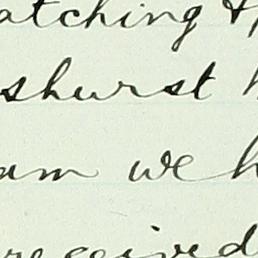 atching &
shurst
am we h
received